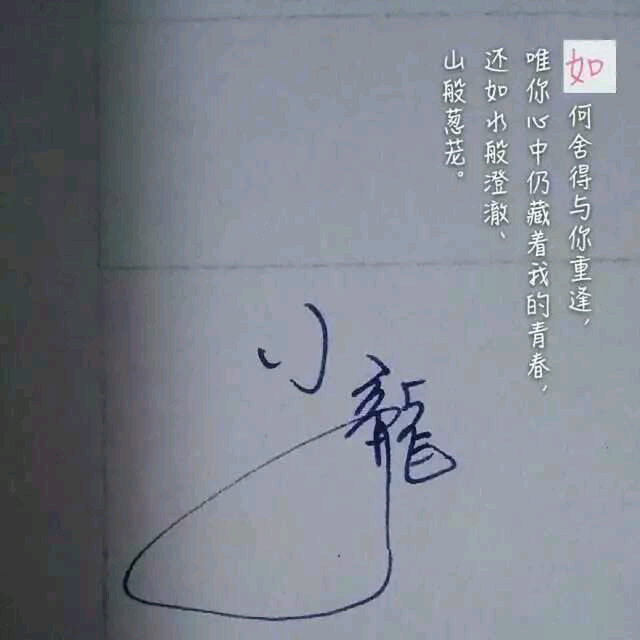 如何舍得与你重逢，
唯你心中仍藏着我的青春，
还如水般澄澈、
山般葱茏。
小龍